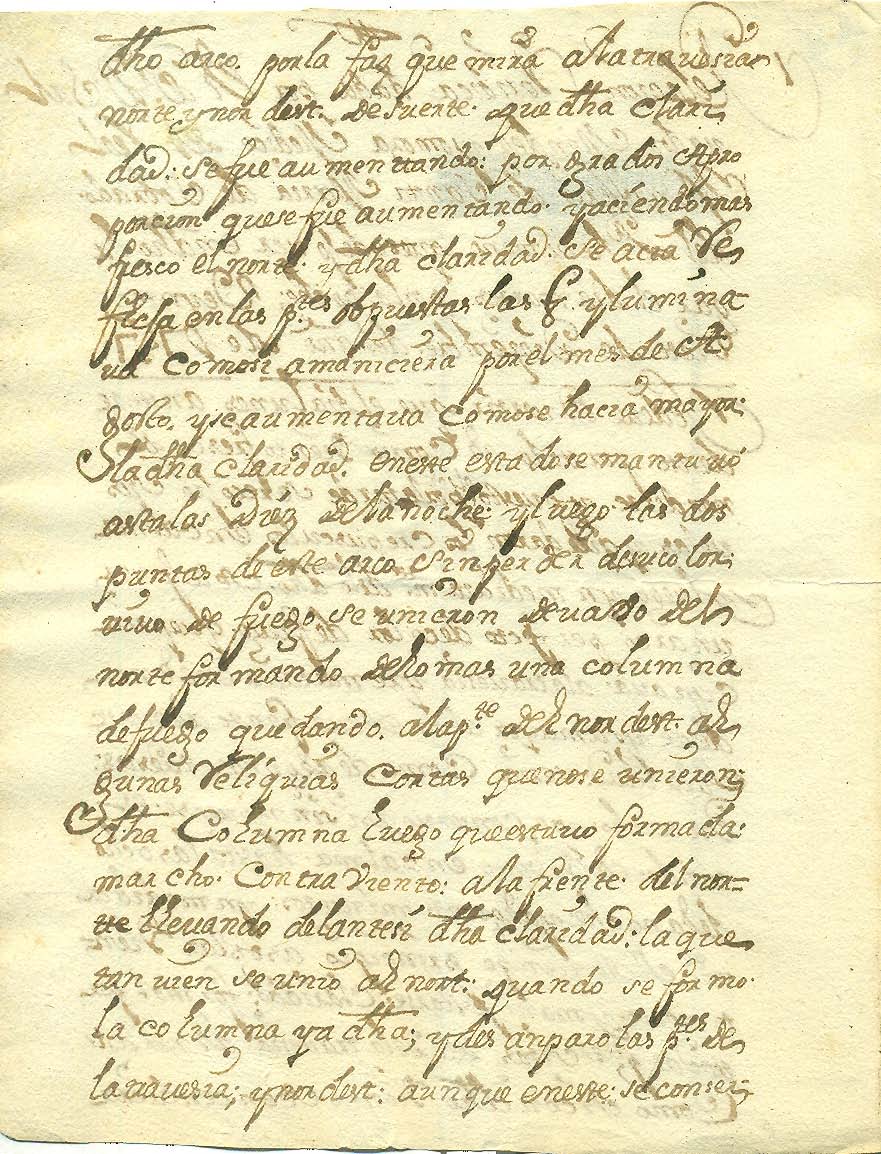 dho arco. por la faz que mira a la travesia
norte y nor dest. de suerte. que dha clari
dad: se fue aumenttando: por grados A pro
porcion que se fue aumentando. y aciendo mas
fresco el norte. y dha claridad. se acia Re
flesa en las p.tes obpuestas las q.e ylumina
va como si amaniciera por el mes de A
gosto. y se aumentava como se hacia mayor:
la dha claridad. en este estado se mantuvo
asta las Diez de la noche: y luego las dos
puntas de este arco sin perder de su color:
vivo de fuego se unieron devaxo del
norte formando de lo mas una columna
de fuego quedando. a la p.te del nordest. al
gunas Reliquias cortas que no se unieron;
dha Columna luego que estuvo formada:
marcho. Contra Viento: a la frente. del nor=
te llevando delante si dha claridad: la que
tan vien se unio al nort: quando se formo.
la columna ya dha; y des anparo las p.tes de
la travesia; y nor dest: aunque en este: se conser;